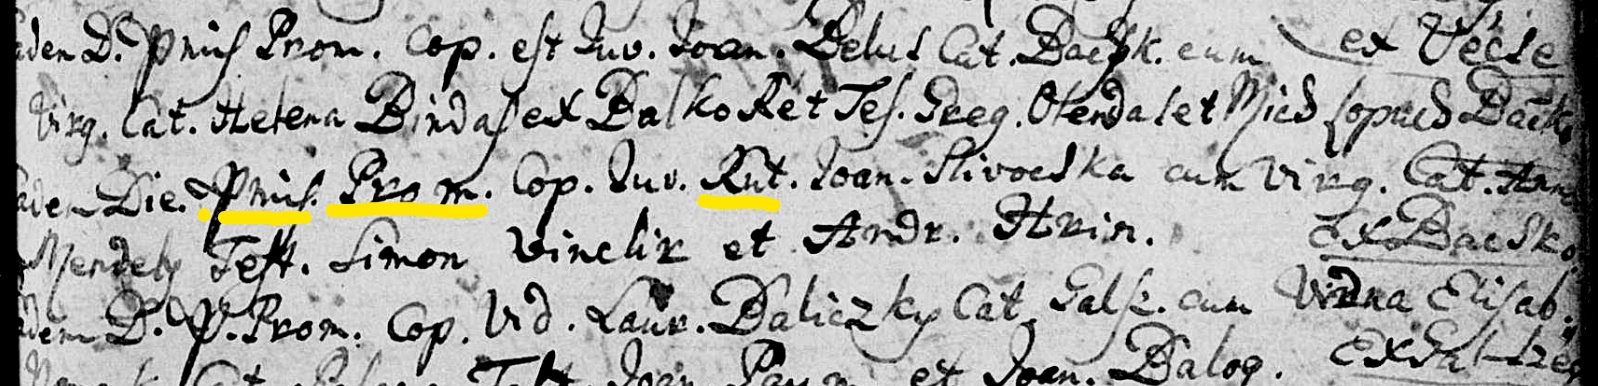 aden D. Pmis Prom. Cop. est Juv. Joan. Belus Cat. Bacsk. cum ex Vécse
Virg. Cat. Helena Bindas ex Balko Ret Tes. Greg. et Mich Bacsk.
aden Die. Pmis. Prom. Cop. Juv. Rut. Joan. Slivocska cum Virg. Cat. Ann
Mendely Test. Simon Vinclir et Andr. Hrin. ex Bacsko.
adem D. P. Prom. Cop. Vid. Laur. Daliczky Cat. Galsz. cum Vidua Elisab.
Cat. Test. Joan et Joan. Balog. ex Gal-szég